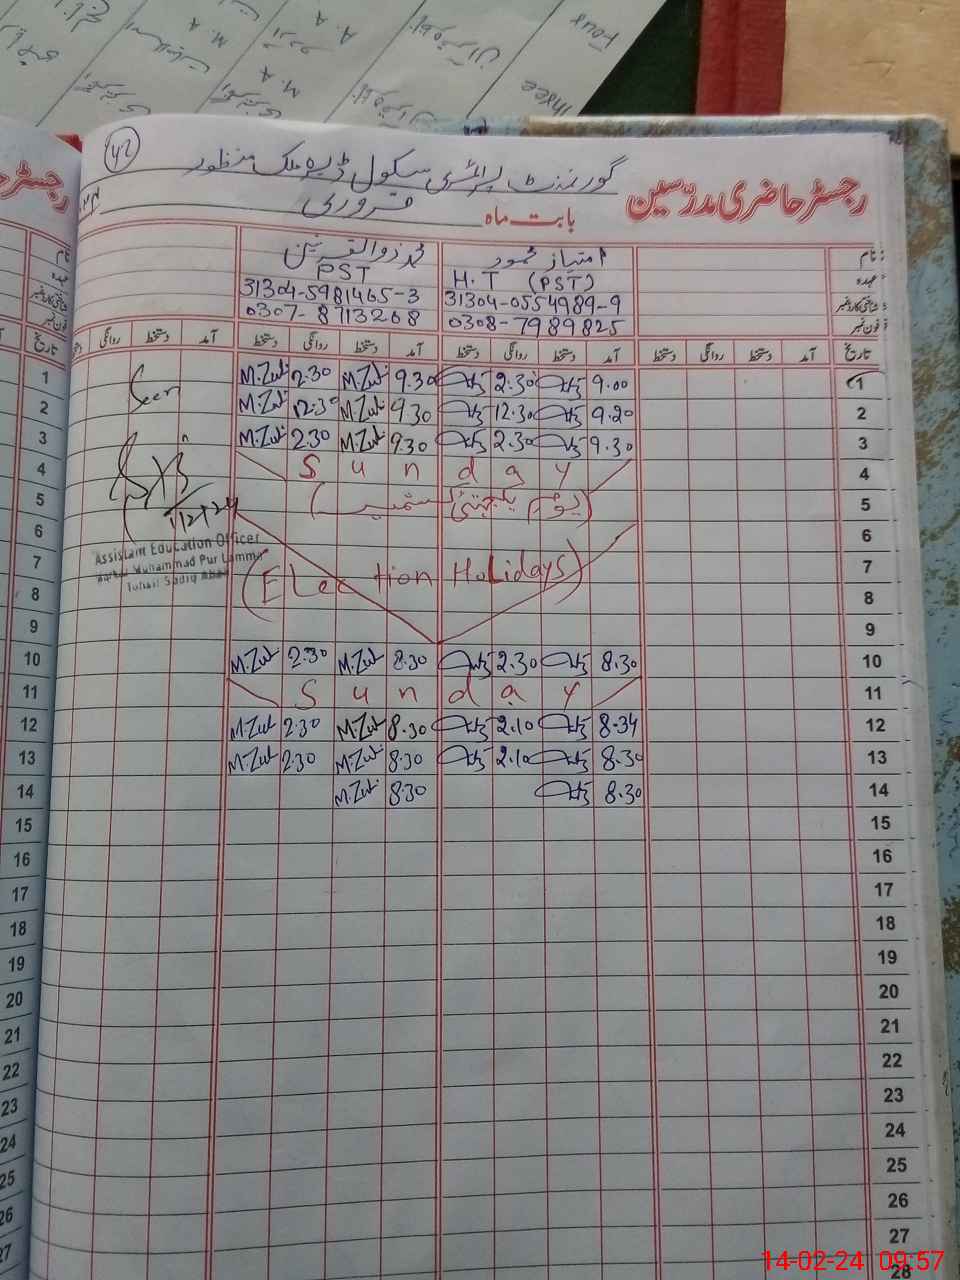 42
گورنمنٹ پرائمری سکول ڈیرہ ملک منظور
رجسٹر حاضری مدرّسین
بابت ماہ فروری
نام امتیاز محمود محمد ذوالقرنین
عہدہ H.T (PST) PST
شناختی کارڈ نمبر 31304-0554989-9 31304-5981465-3
فون نمبر 0308-7989825 0307-8713268
تاریخ آمد دستخط روانگی دستخط آمد دستخط روانگی دستخط آمد دستخط روانگی دستخط آمد دستخط روانگی تاریخ
1 9.00 2.30 9.30 M.Zul 2.30 M.Zul Seen 1
2 9.20 12.30 9.30 M.Zul 12.30 M.Zul 2
3 9.30 2.30 9.30 M.Zul 2.30 M.Zul 3
4 Sunday 4
5 (یوم یکجہتی کشمیر) 5
1/2/24
6 6
Assistant Education Officer
7 (Election Holidays) 7
Markaz Muhammad Pur Lamma
Tehsil Sadiq Abad
8 8
9 9
10 8.30 2.30 8.30 M.Zul 2.30 M.Zul 10
11 Sunday 11
12 8.34 2.10 8.30 M.Zul 2.30 M.Zul 12
13 8.30 2.10 8.30 M.Zul 2.30 M.Zul 13
14 8.30 8.30 M.Zul 14
15 15
16 16
17 17
18 18
19 19
20 20
21 21
22 22
23 23
24 24
25 25
26 26
27 27
28
14-02-24 09:57